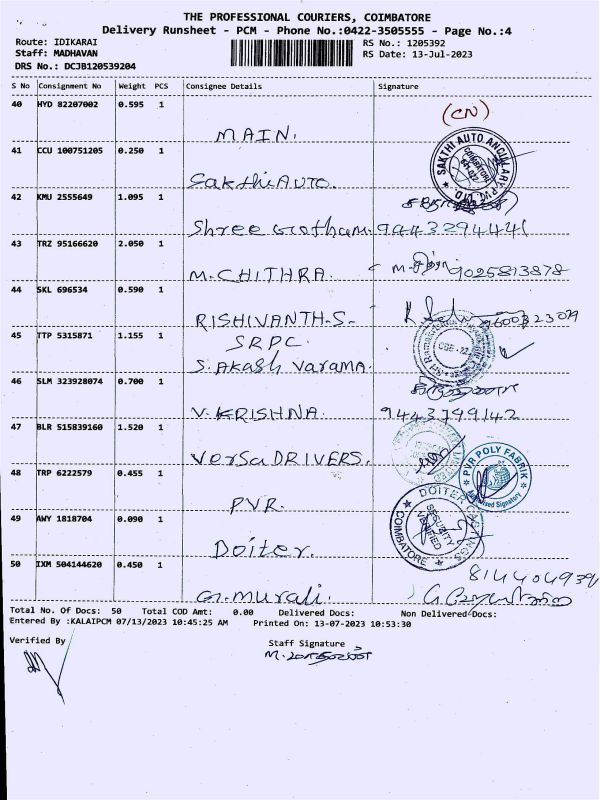 THE PROFESSIONAL COURIERS, COIMBATORE
Delivery Runsheet - PCM - Phone No.:0422-3505555 - Page No.:4
Route: IDIKARAI RS No.: 1205392
Staff: MADHAVAN RS Date: 13-Jul-2023
DRS No.: DCJB120539204
S No Consignment No Weight PCS Consignee Details Signature
40 HYD 82207002 0.595 1
(CN)
MAIN.
41 CCU 100751205 0.250 1
SAKTHI AUTO ANCILLARY PVT. LTD.
COIMBATORE
SakthiAUTO.
42 KMU 2555649 1.095 1
Shree Gotham. 9443294441
43 TRZ 95166620 2.050 1
M.CHITHRA. 9025813878
44 SKL 696534 0.590 1
RISHIVANTH-S-
45 TTP 5315871 1.155 1
SRPC.
S. Akash Varama.
46 SLM 323928074 0.700 1
V. KRISHNA. 9443799142
47 BLR 515839160 1.520 1
VersaDRIVERS.
48 TRP 6222579 0.455 1
PVR POLY FABRIK
Authorised Signatory
PVR.
49 AWY 1818704 0.090 1
DOITER CASTINGS
SECURITY
VERIFIED
COIMBATORE
Doiter.
50 IXM 504144620 0.450 1
G. murali.
Total No. Of Docs: 50 Total COD Amt: 0.00 Delivered Docs: Non Delivered Docs:
Entered By :KALAIPCM 07/13/2023 10:45:25 AM Printed On: 13-07-2023 10:53:30
Verified By Staff Signature